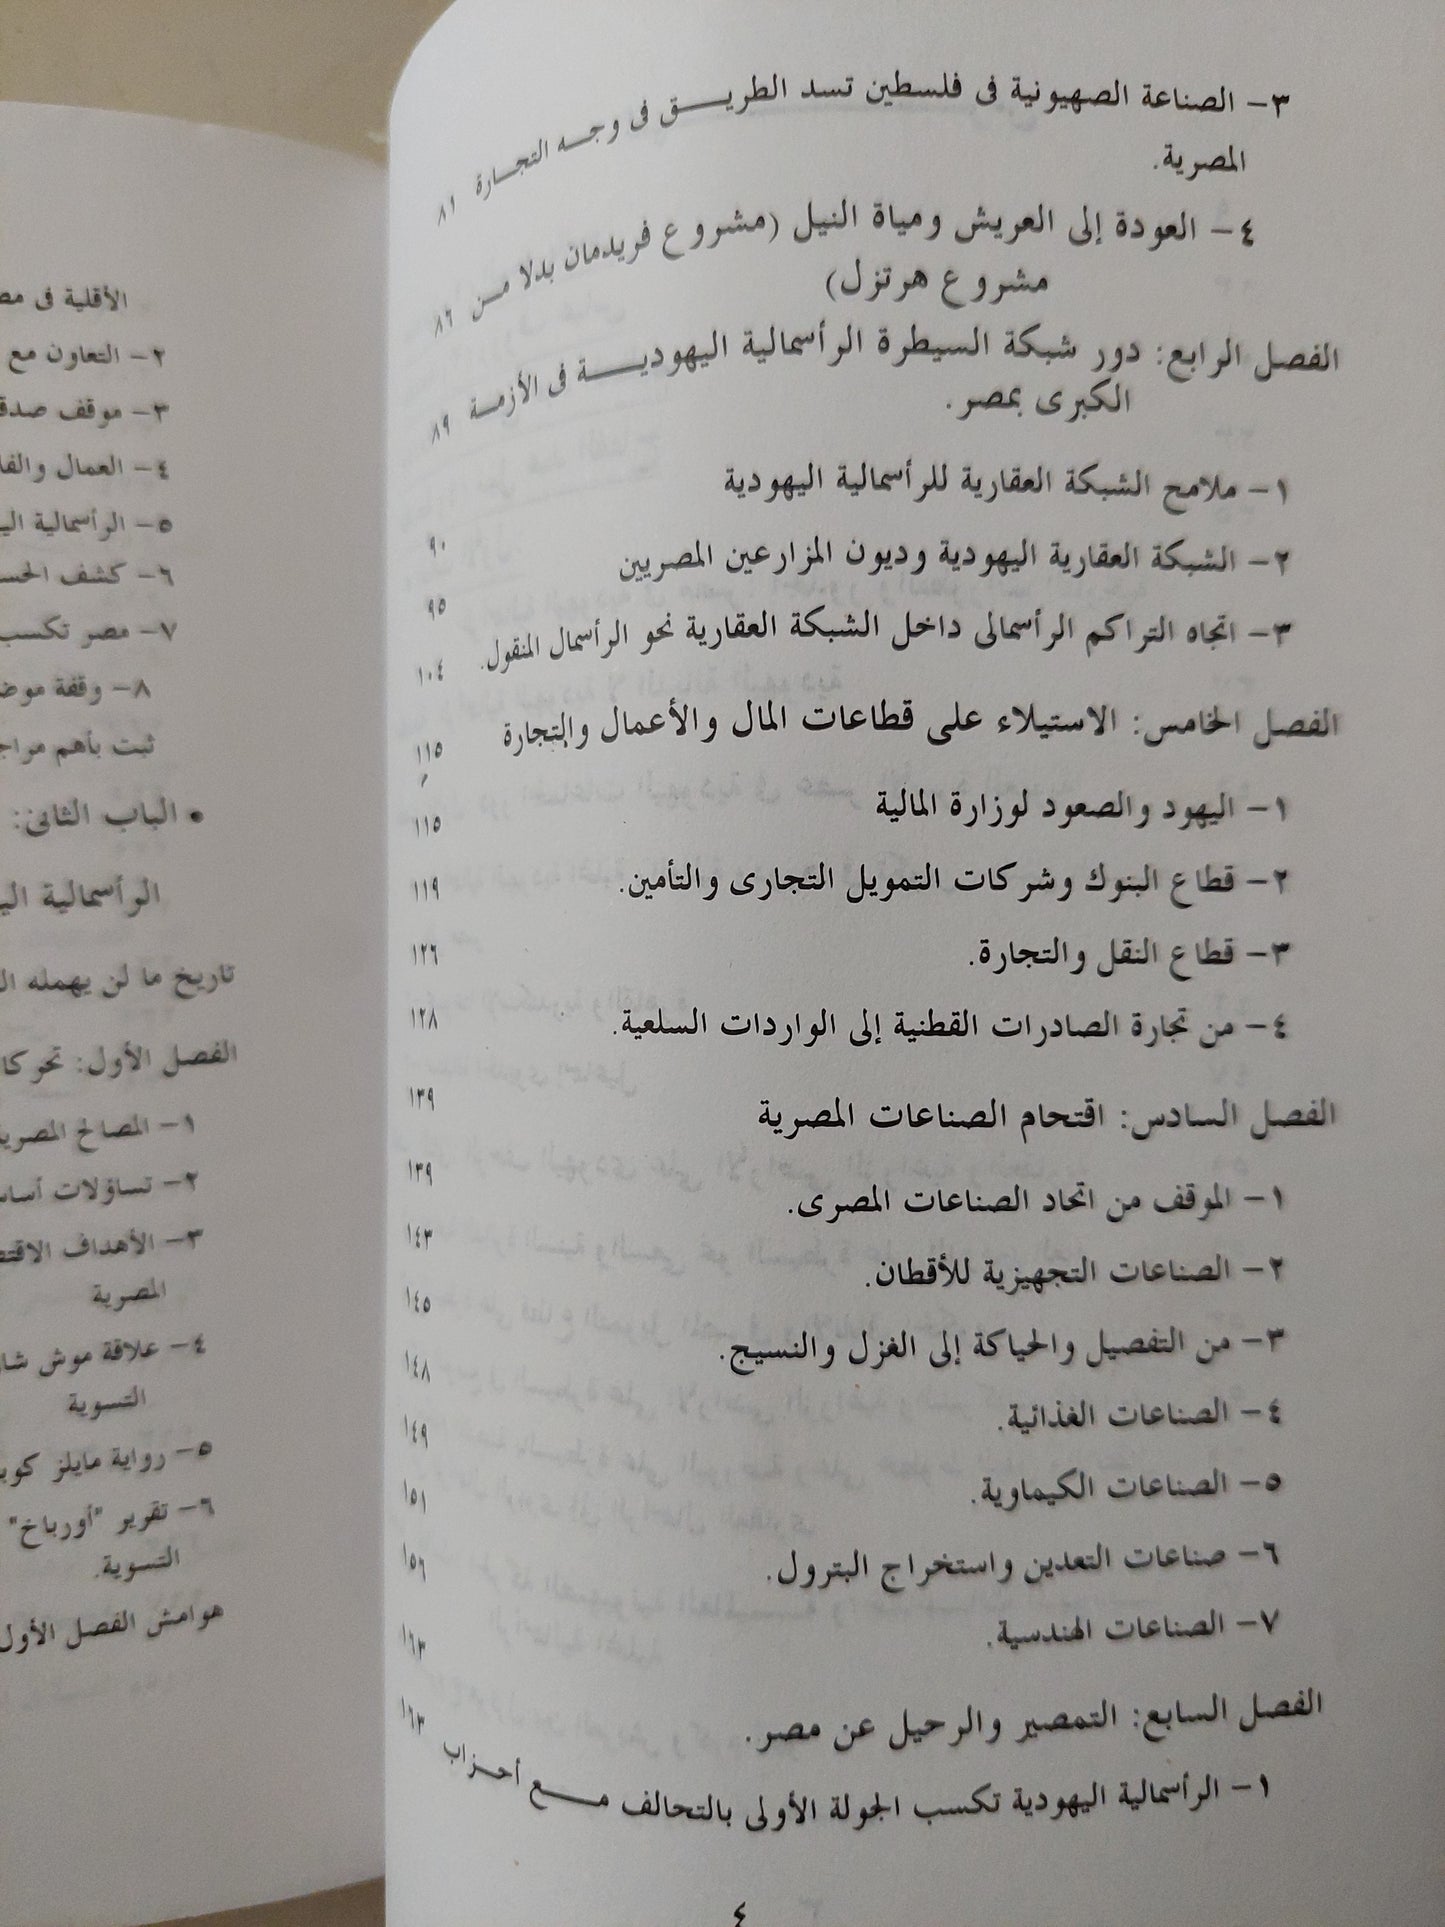 ٣- الصناعة الصهيونية فى فلسطين تسد الطريق فى وجه التجارة ٨١
المصرية.
٤- العودة إلى العريش ومياة النيل (مشروع فريدمان بدلا من ٨٦
مشروع هرتزل)
الفصل الرابع: دور شبكة السيطرة الرأسمالية اليهودية فى الأزمة ٨٩
الكبرى بمصر.
١- ملامح الشبكة العقارية للرأسمالية اليهودية ٩٠
٢- الشبكة العقارية اليهودية وديون المزارعين المصريين ٩٥
٣- اتجاه التراكم الرأسمالى داخل الشبكة العقارية نحو الرأسمال المنقول. ١٠٤
الفصل الخامس: الاستيلاء على قطاعات المال والأعمال والتجارة ١١٥
١- اليهود والصعود لوزارة المالية ١١٥
٢- قطاع البنوك وشركات التمويل التجارى والتأمين. ١١٩
٣- قطاع النقل والتجارة. ١٢٦
٤- من تجارة الصادرات القطنية إلى الواردات السلعية. ١٢٨
الفصل السادس: اقتحام الصناعات المصرية ١٣٩
١- الموقف من اتحاد الصناعات المصرى. ١٣٩
٢- الصناعات التجهيزية للأقطان. ١٤٣
٣- من التفصيل والحياكة إلى الغزل والنسيج. ١٤٥
٤- الصناعات الغذائية. ١٤٨
٥- الصناعات الكيماوية. ١٤٩
٦- صناعات التعدين واستخراج البترول. ١٥١
٧- الصناعات الهندسية. ١٥٦
الفصل السابع: التمصير والرحيل عن مصر. ١٦٣
١- الرأسمالية اليهودية تكسب الجولة الأولى بالتحالف مع أحزاب ١٦٣
٤
الأقلية فى
٢- التعاون مع
٣- موقف
٤- العمال
٥- الرأسمالية
٦- كشف
٧- مصر تكسب
٨- وقفة
ثبت بأهم
• الباب الثانى:
الرأسمالية
تاريخ ما لن يهمله
الفصل الأول:
١- المصالح
٢- تساؤلات
٣- الأهداف
المصرية
٤- علاقة موش
التسوية
٥- رواية مايلز
٦- تقرير "أورباخ"
التسوية.
هوامش الفصل الأول